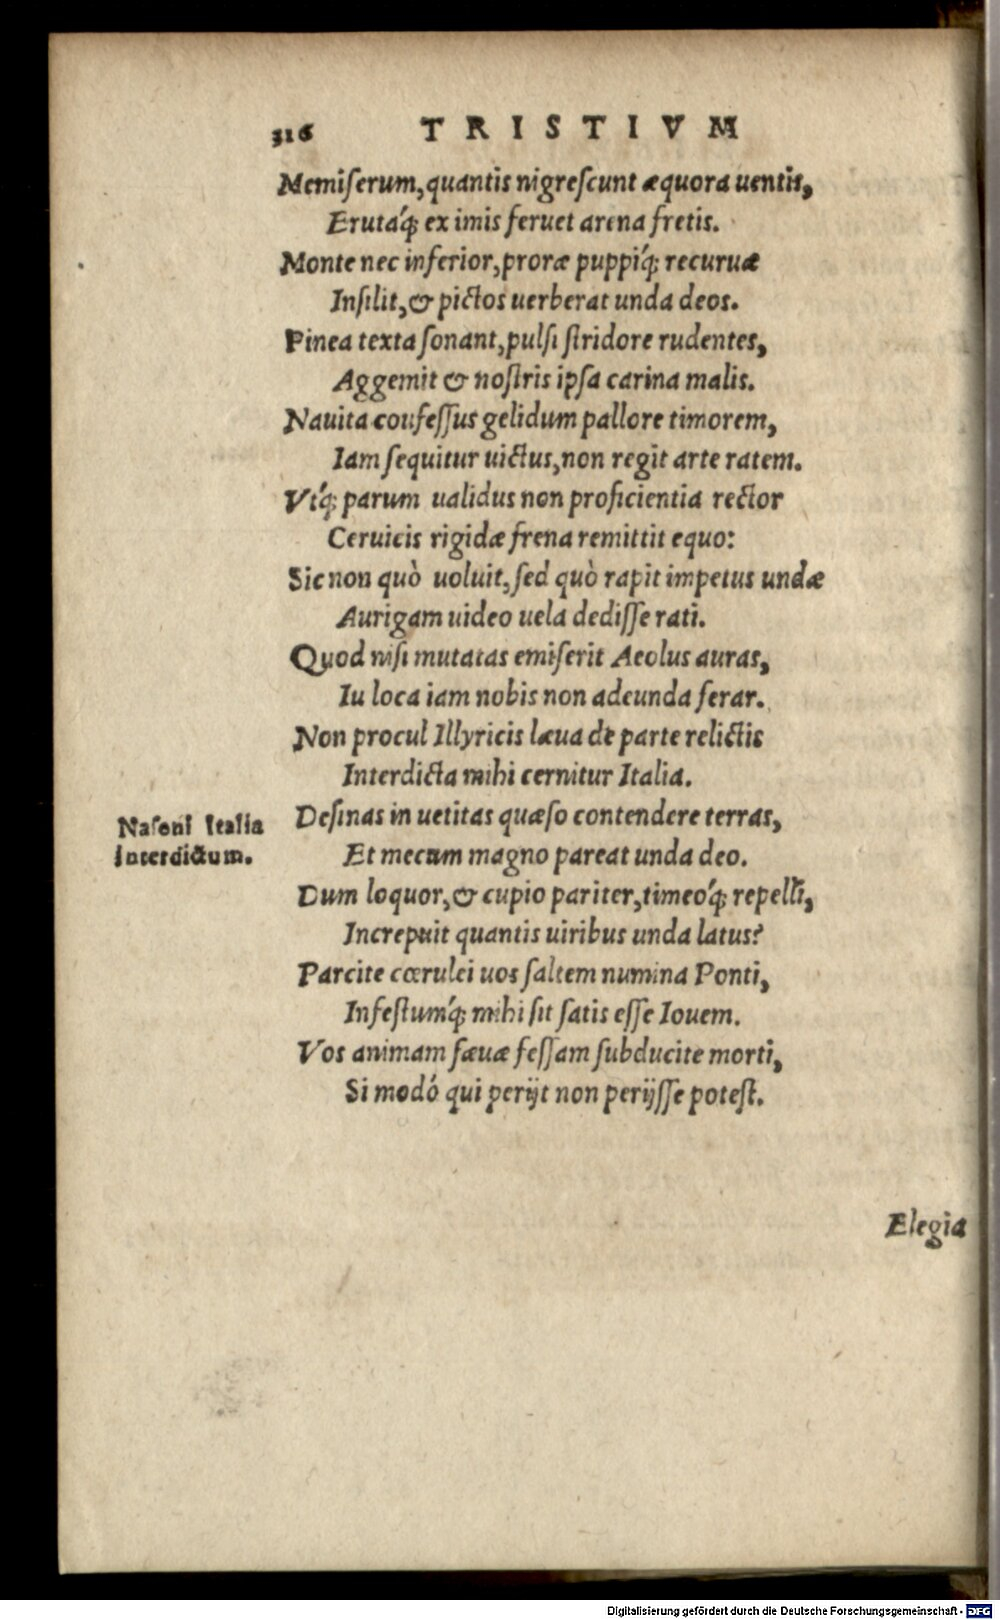 316 TRISTIVM
Memiserum, quantis nigrescunt æquora uentis,
Erutaq́; ex imis feruet arena fretis.
Monte nec inferior, proræ puppiq́; recuruæ
Insilit, & pictos uerberat unda deos.
Pinea texta sonant, pulsi stridore rudentes,
Aggemit & nostris ipsa carina malis.
Nauita confessus gelidum pallore timorem,
Iam sequitur uictus, non regit arte ratem.
Vtq́; parum ualidus non proficientia rector
Ceruicis rigidæ frena remittit equo:
Sic non quò uoluit, sed quò rapit impetus undæ
Aurigam uideo uela dedisse rati.
Quod nisi mutatas emiserit Aeolus auras,
Iu loca iam nobis non adeunda ferar.
Non procul Illyricis læua de parte relictis
Interdicta mihi cernitur Italia.
Nasoni Italia
interdictum.
Desinas in uetitas quæso contendere terras,
Et mecum magno pareat unda deo.
Dum loquor, & cupio pariter, timeoq́; repelli,
Increpuit quantis uiribus unda latus?
Parcite cœrulei uos saltem numina Ponti,
Infestumq́; mihi sit satis esse Iouem.
Vos animam sæuæ fessam subducite morti,
Si modó qui perijt non perijsse potest.
Elegia
Digitalisierung gefördert durch die Deutsche Forschungsgemeinschaft - DFG